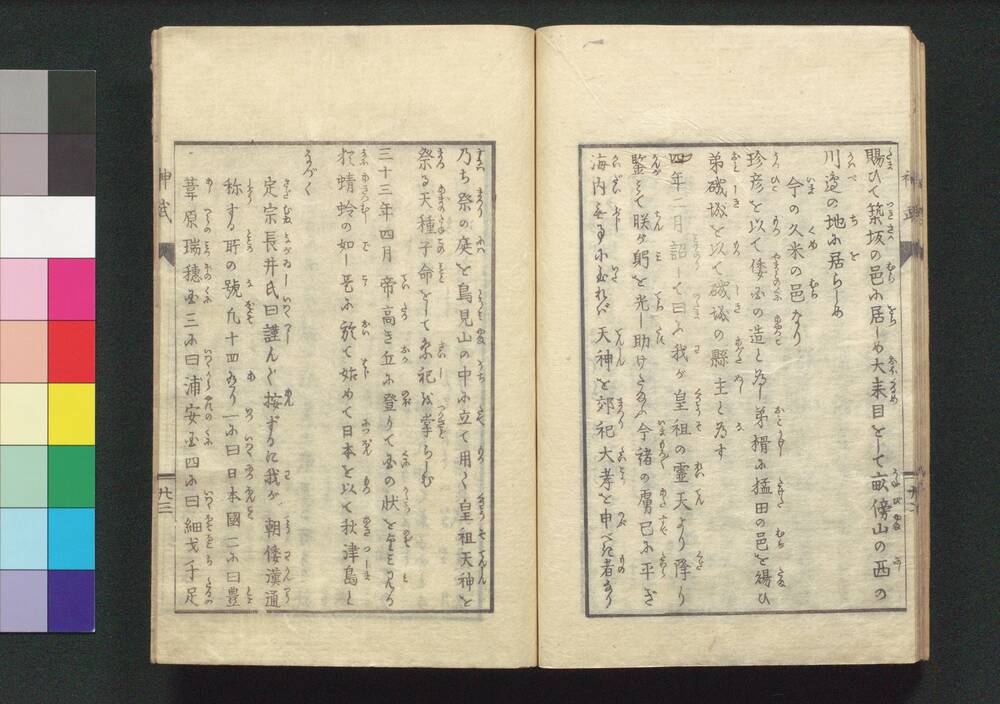 賜ひて築坂の邑に居らしめ大来目をして畝傍山の西の
川邊の地に居らしめ
今の久米の邑なり
珍彦を以て倭国の造と為し弟猾に猛田の邑を賜ひ
弟磯城を以て磯城の縣主と為す
四年二月詔して曰に我が皇祖の霊天より降り
鑒みて朕が躬を光し助けたまふ今諸の虜已に平ぎ
海内無事に 天神を郊祀大孝を申べき者なり
乃ち祭の庭を鳥見山の中に立て用て皇祖天神を
祭る天種子命をして祭祀を掌らしむ
三十三年四月帝高き丘に登りて国の状を
蜻蛉の如し是に於て始めて日本を以て秋津島と
なづく
定宗長井氏曰謹んで按ずるに我が朝倭漢通
称する所の號凡十四あり一に曰日本國二に曰豊
葦原瑞穂国三に曰浦安国四に曰細戈千足
神武
廿三